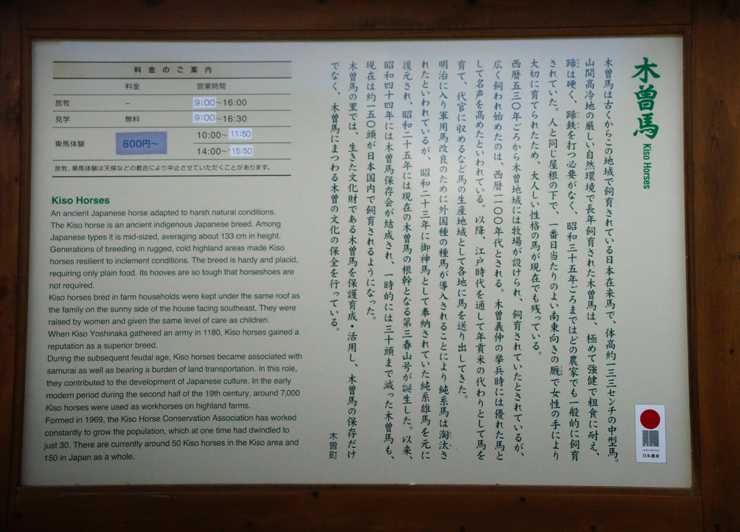 木曽馬
Kiso Horses
木曽馬は古くからこの地域で飼育されている日本在来馬で、体高約一三三センチの中型馬。
山間高冷地の厳しい自然環境で長年飼育された木曽馬は、極めて強健で粗食に耐え、
蹄は硬く、蹄鉄を打つ必要がなく、昭和三十五年ごろまではどの農家でも一般的に飼育
されていた。人と同じ屋根の下で、一番日当たりのよい南東向きの厩で女性の手により
大切に育てられたため、大人しい性格の馬が現在でも残っている。
西暦五三〇年ごろから木曽地域には牧場が設けられ、飼育されていたとされているが、
広く飼われ始めたのは、西暦一一〇〇年代とされる。木曽義仲の挙兵時には優れた馬と
して名声を高めたといわれている。以降、江戸時代を通して年貢米の代わりとして馬を
育て、代官に収めるなど馬の生産地域として各地に馬を送り出してきた。
明治に入り軍用馬改良のために外国種の種馬が導入されることにより純系馬は淘汰さ
れたといわれているが、昭和二十三年に御神馬として奉納されていた純系雄馬を元に
復元され、昭和二十五年には現在の木曽馬の根幹となる第三春山号が誕生した。以来、
昭和四十四年には木曽馬保存会が結成され、一時的には三十頭まで減った木曽馬も、
現在は約一五〇頭が日本国内で飼育されるようになった。
木曽馬の里では、生きた文化財である木曽馬を保護育成・活用し、木曽馬の保存だけ
でなく、木曽馬にまつわる木曽の文化の保全を行っている。
木曽町
料金のご案内
料金 営業時間
放牧 – 9:00～16:00
見学 無料 9:00～16:30
乗馬体験 800円～ 10:00～11:50
14:00～15:50
放牧、乗馬体験は天候などの都合により中止させていただくことがあります。
Kiso Horses
An ancient Japanese horse adapted to harsh natural conditions.
The Kiso horse is an ancient indigenous Japanese breed. Among
Japanese types it is mid-sized, averaging about 133 cm in height.
Generations of breeding in rugged, cold highland areas made Kiso
horses resilient to inclement conditions. The breed is hardy and placid,
requiring only plain food. Its hooves are so tough that horseshoes are
not required.
Kiso horses bred in farm households were kept under the same roof as
the family on the sunny side of the house facing southeast. They were
raised by women and given the same level of care as children.
When Kiso Yoshinaka gathered an army in 1180, Kiso horses gained a
reputation as a superior breed.
During the subsequent feudal age, Kiso horses became associated with
samurai as well as bearing a burden of land transportation. In this role,
they contributed to the development of Japanese culture. In the early
modern period during the second half of the 19th century, around 7,000
Kiso horses were used as workhorses on highland farms.
Formed in 1969, the Kiso Horse Conservation Association has worked
constantly to grow the population, which at one time had dwindled to
just 30. There are currently around 50 Kiso horses in the Kiso area and
150 in Japan as a whole.
日本遺産